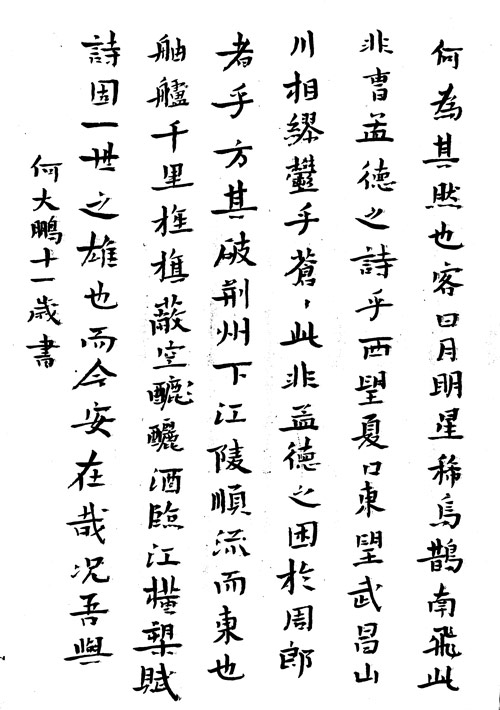 何為其然也客曰月明星稀烏鵲南飛此
非曹孟德之詩乎西望夏口東望武昌山
川相繆鬱乎蒼〻此非孟德之困於周郎
者乎方其破荊州下江陵順流而東也
舳艫千里旌旗蔽空釃酒臨江橫槊賦
詩固一世之雄也而今安在哉況吾與
何大鵬十一歲書